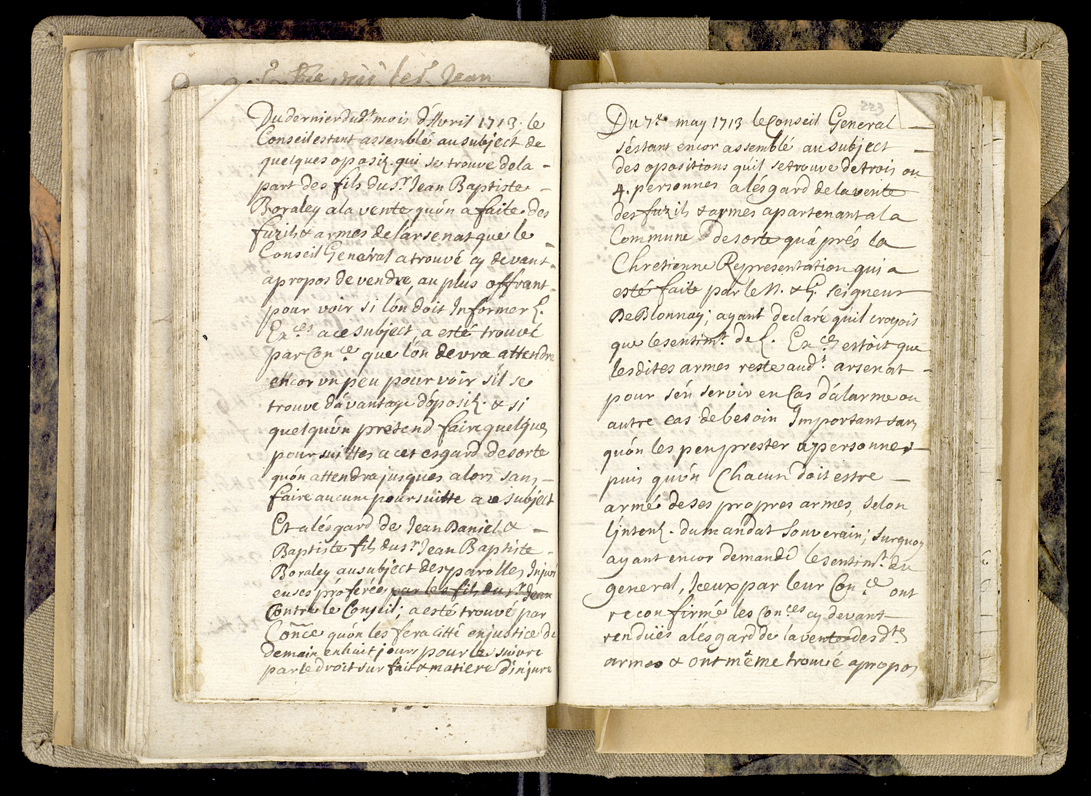 Du dernier dud.t mois d'Avril 1713; le
Conseil estant assemblé au subject de
quelques oposi͠o. qui se trouve de la
part des fils du s.r Jean Baptiste
Boraley a la vente qu'on a faite des
fuzils & armes de l'arsenat que le
Conseil General a trouvé cy devant
apropos de vendre, au plus offrant
pour voir si l'on doit Informer L.
Ex.ces a ce subject, a esté trouvé
par Con.ce que l'on devra attendre
encor un peu pour voir s'il se
trouve davantage d'oposi͠o. & si
quelqu'un pretend faire quelques
poursuittes a cet esgard de sorte
qu'on attendra jusques alors sans
faire aucune poursuitte a ce subject
Et a lésgard de Jean Daniel &
Baptiste fils du s.r Jean Baptiste
Boraley au subject des parolles Injuri
euses proferées par les fils du s.r Jean
Contre le Conseil; a esté trouvé par
Con͠ce qu'on les fera citté en justice de
demain en huit jours pour le suivre
par le droit sur fait & matiere d'injure
223
Du 7.e may 1713 le Conseil General
s'éstant encor assemblé au subject
des opositions qu'il se trouve de trois ou
4. personnes a lésgard de la vente
des fuzils & armes apartenant a la
Commune De sorte qu'aprés la
Chretienne Representation qui a
esté faite par le N. & G. seigneur
De Blonnay; ayant declaré qu'il croyois
que le sentim.t de L. Ex.ces estoit que
lesdites armes reste aud.t arsenat
pour s'én servir en Cas d'alarme ou
autre cas de besoin Important sans
qu'on les peu prester a personnes
puis qu'un Chacun doit estre
armé de ses propres armes, selon
l'inten͠o. du mandat Souverain; surquoy
ayant encor demandé le sentim.t du
general, Iceux par leur Con.ce ont
reconfirmé les Con.ces cy devant
renduës a lésgard de la vente desd.tes
armes & ont même trouvé apropos